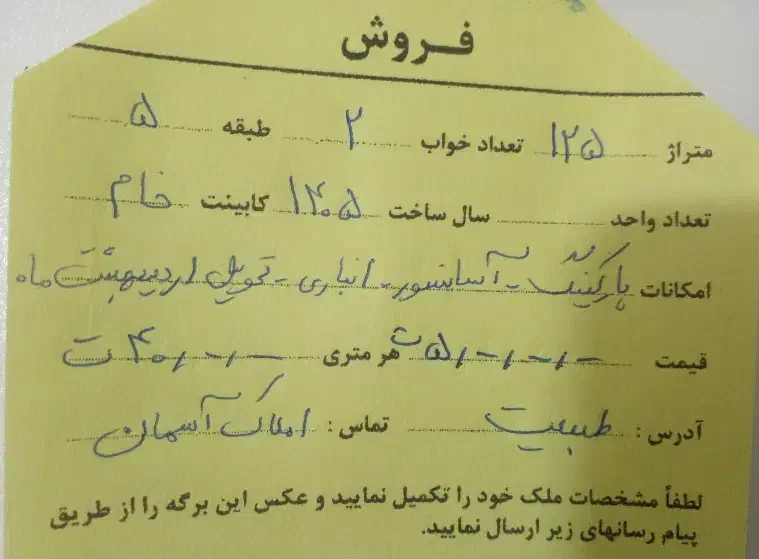 فروش
متراژ ۱۲۵ تعداد خواب ۲ طبقه ۵
تعداد واحد سال ساخت ۱۴۰۵ کابینت خام
امکانات پارکینگ - آسانسور - انباری - تحویل اردیبهشت ماه
قیمت ۵/۰۰۰/۰۰۰/۰۰۰ ت هر متری ۴۰/۰۰۰/۰۰۰ ت
آدرس : طبیعت تماس : املاک آسمان
لطفاً مشخصات ملک خود را تکمیل نمایید و عکس این برگه را از طریق
پیام رسانهای زیر ارسال نمایید.